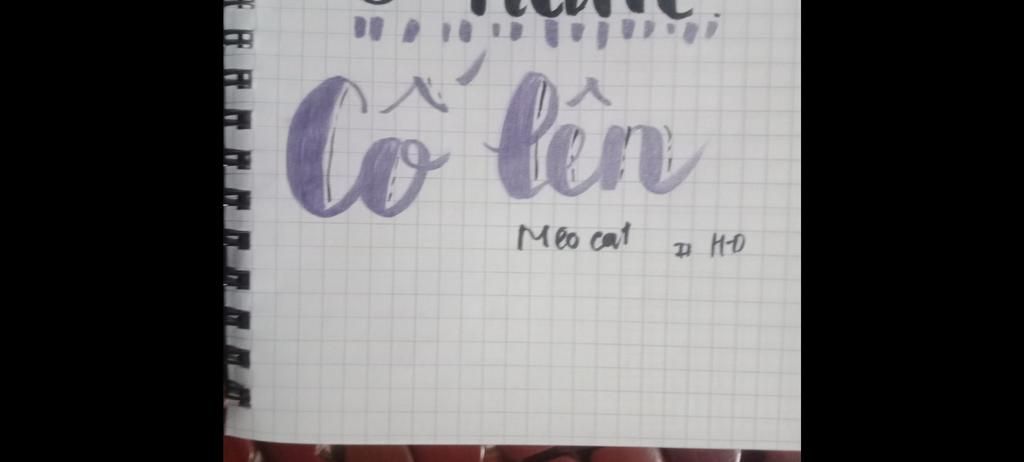 Cố lên
Meo cat # H-D